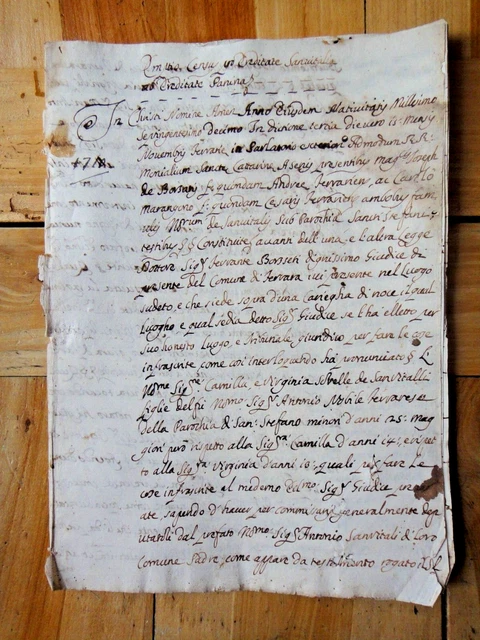 Emptio Census pro Ereditate Sanvitala
ab Ereditate Panina
In Christi Nomine Amen Anno Eiusdem Nativitatis Millesimo
Septingentesimo decimo Indictione tertia die vero 10 mensis
Novembris Ferrarie in Parlatorio exteriori Admodum RR
Monialium Sancte Catterine presentibus Joseph
de filio quondam Andree Ferrarien, ac Camillo
filio quondam Cesaris Ferrarien ambobus fam
de Sanvitalis sub Parochia Sancti Stefani
testibus Constituite avanti dell' una, e l'altra Legge
Dottore Sigr Ferrante Borseti dignissimo Giudice di
presente del Comune di Ferrara ivi presente nel Luogo
sudeto, e che siede sopra d'una Cariegha di noce il qual
luogho, e qual sedia detto Sigr Giudice se l'ha elletto per
suo honesto Luogo, e Tribunale giuridico per fare le cose
infrascritte come così interloquendo ha pronunciato
Sigre Camilla, e Virginia Sorelle de Sanvitalli
figlie del fu Sigr Antonio Nobile Ferrarese
della Parochia di San: Stefano minori d'anni 25: mag
giori però rispetto alla Sigra Camilla d'anni 14: e rispet
to alla Sigra Virginia d'anni 10: quali per fare le
cose infrascritte al medemo Sigr Giudice
ate, sapendo d'havere per commissarij generalmente dep
utatili dal prefato Sigr Antonio Sanvitali di loro
Comune Padre, come appare da testamento rogato